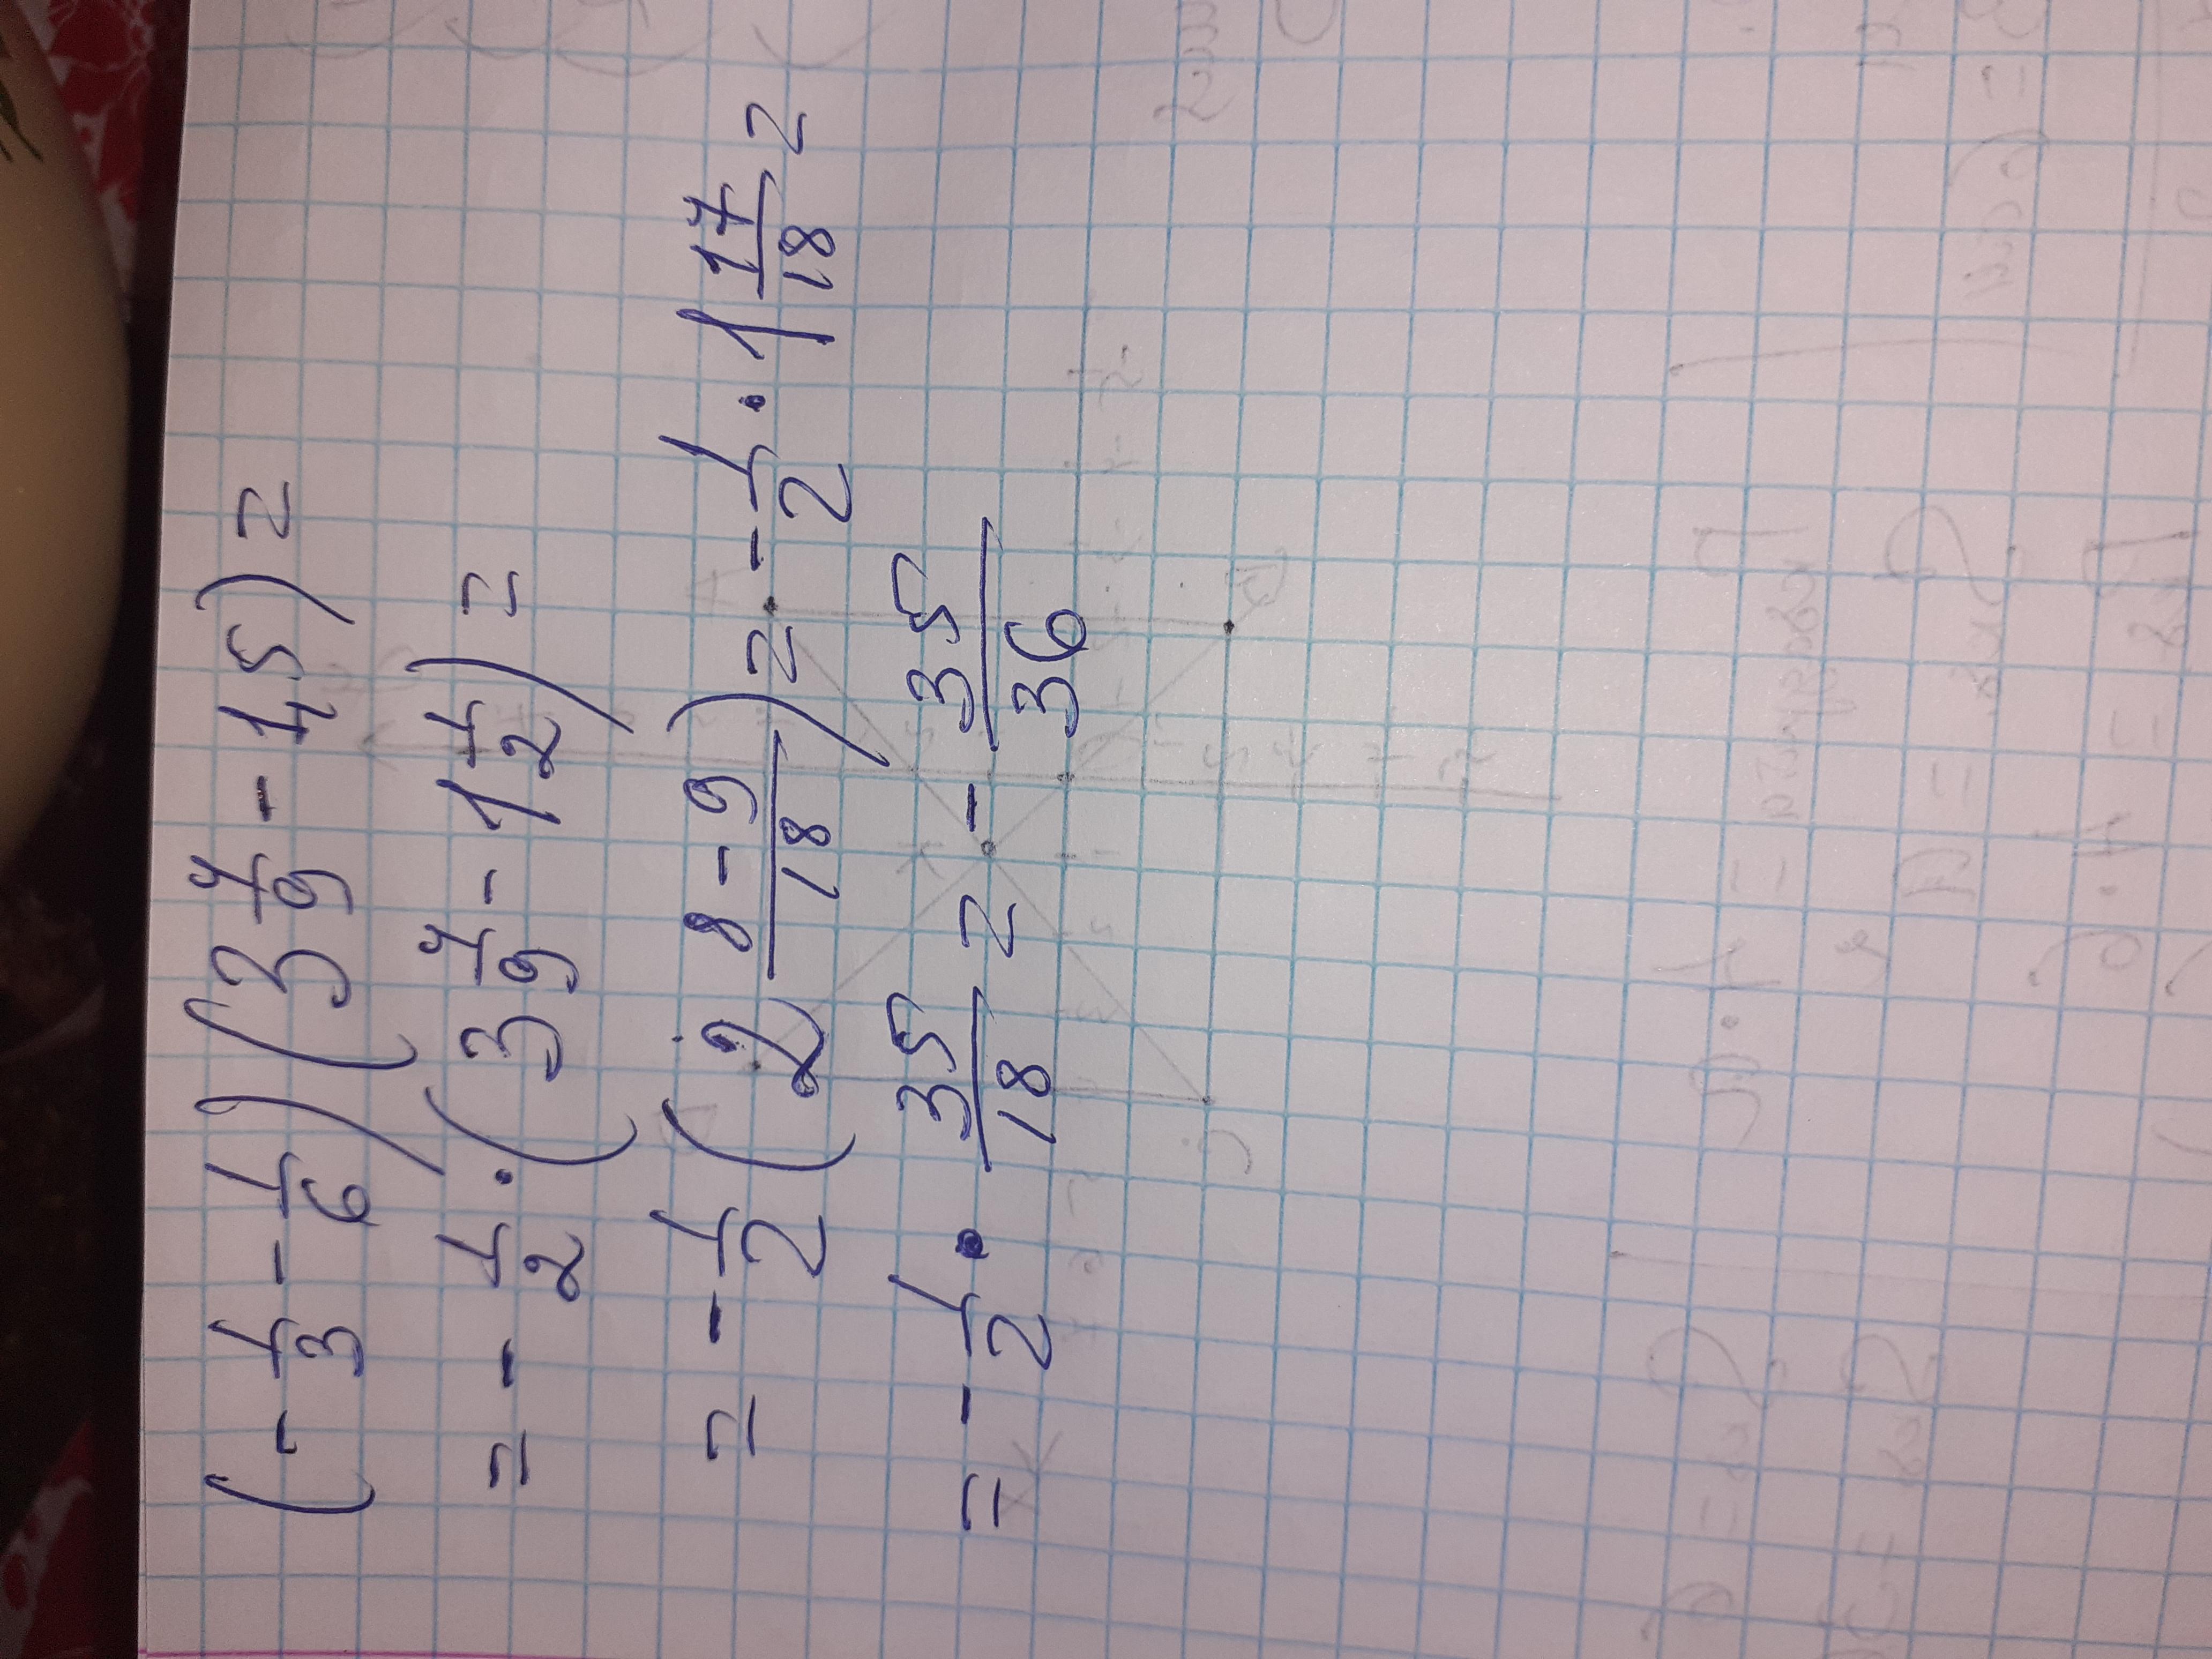 (- 1/3 - 1/6) (3 4/9 - 1,5) =
= - 1/2 · (3 4/9 - 1 1/2) =
= - 1/2 (2 8-9/18) = - 1/2 · 1 17/18 =
= - 1/2 · 35/18 = - 35/36